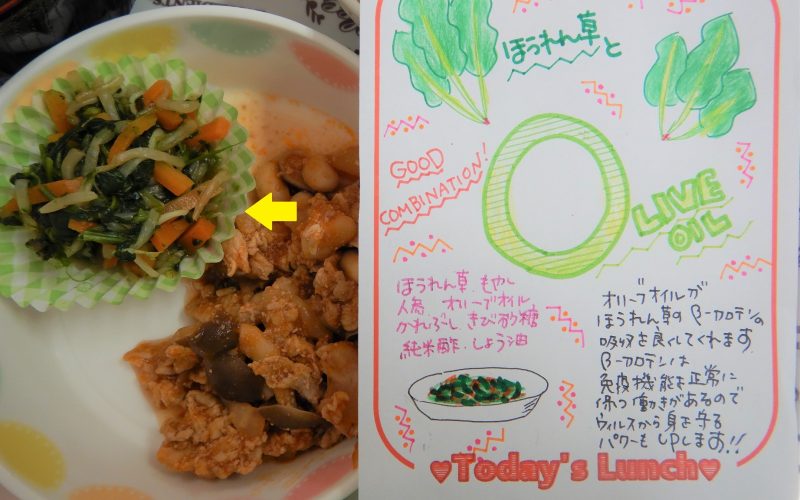 ほうれん草と
GOOD
COMBINATION!
OLIVE
OIL
ほうれん草 もやし
人参 オリーブオイル
かつおぶし きび砂糖
純米酢 しょうゆ
オリーブオイルが
ほうれん草の β-カロテンの
吸収を良くしてくれます
β-カロテンは
免疫機能を正常に
保つ働きがあるので
ウィルスから身を守る
パワーもUPします!!
Today's Lunch